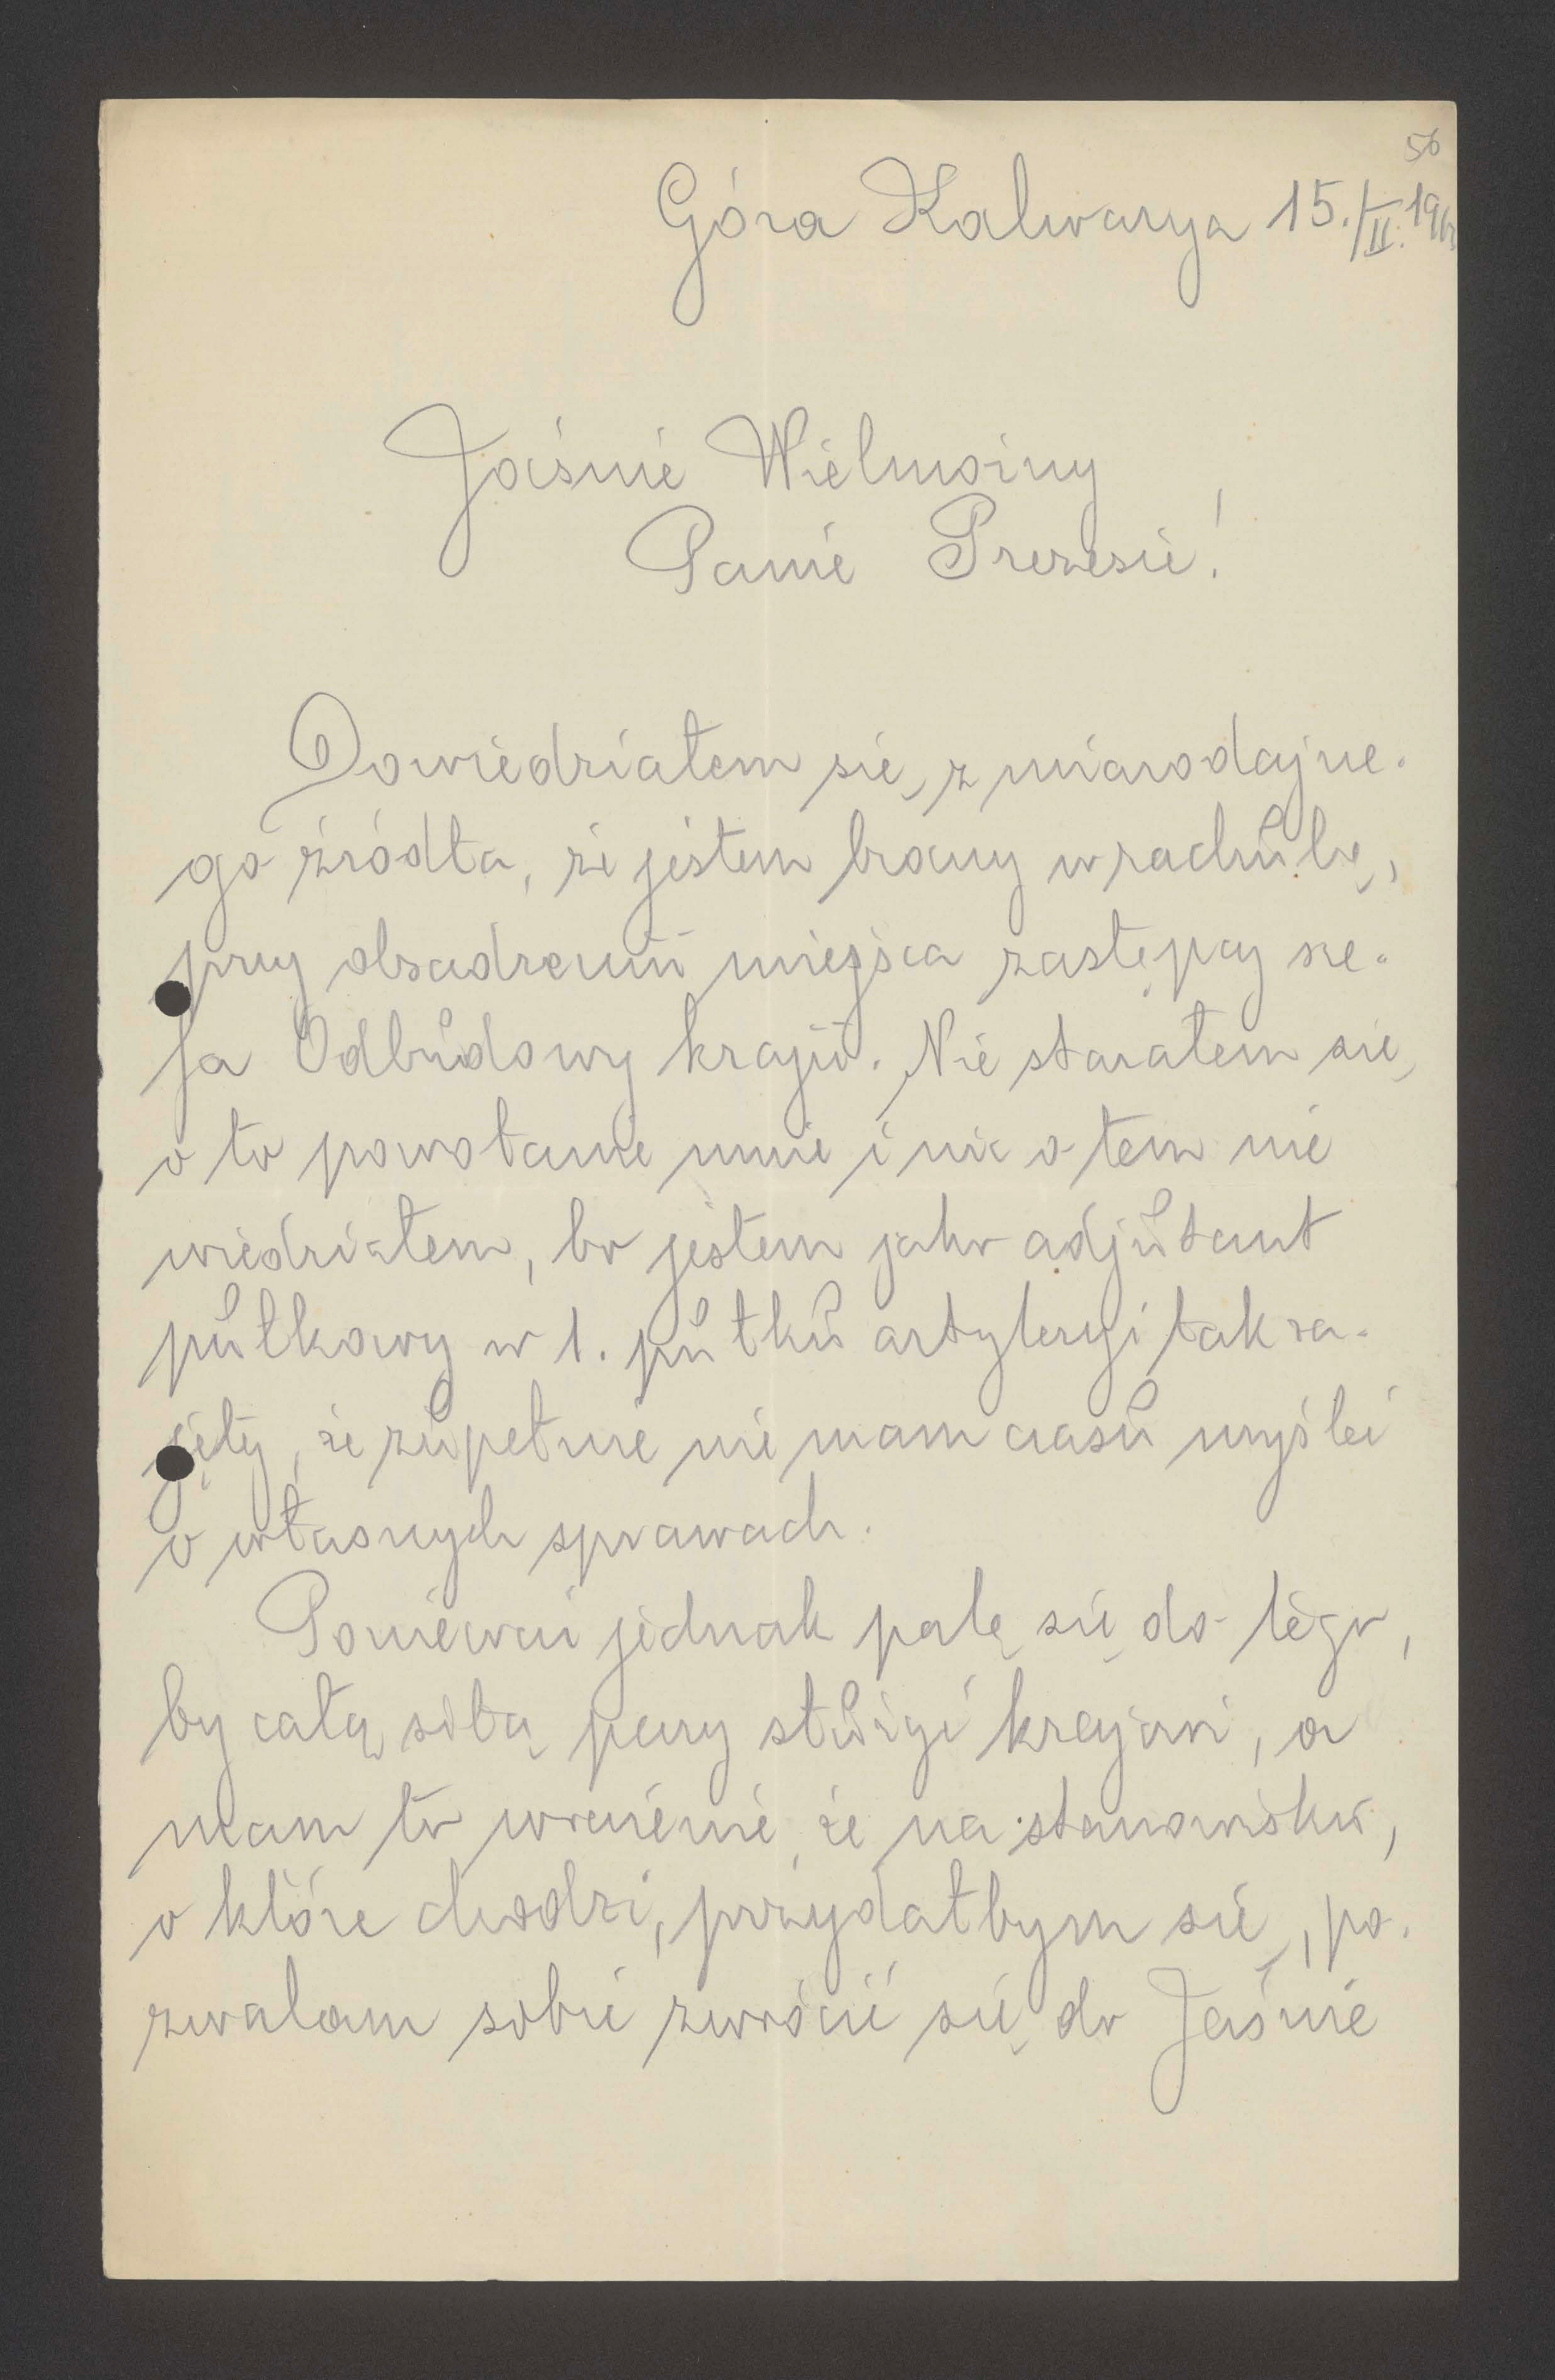 56
Góra Kalwarya 15./II.
Jaśnie Wielmożny
Panie Prezesie!
Dowiedziałem się z miarodajne-
go źródła, że jestem brany w rachubę,
przy obsadzeniu miejsca zastępcy sze-
fa Odbudowy kraju. Nie starałem się
o to powołanie mnie i nic o tem nie
wiedziałem, bo jestem jako adjutant
pułkowy w 1. pułku artyleryi tak za-
jęty, że zupełnie nie mam czasu myśleć
o własnych sprawach.
Ponieważ jednak palę się do tego,
by całą siłą pary służyć krajowi, a
mam to wrażenie, że na stanowisku,
o które chodzi, przydałbym się, po-
zwalam sobie zwrócić się do Jaśnie